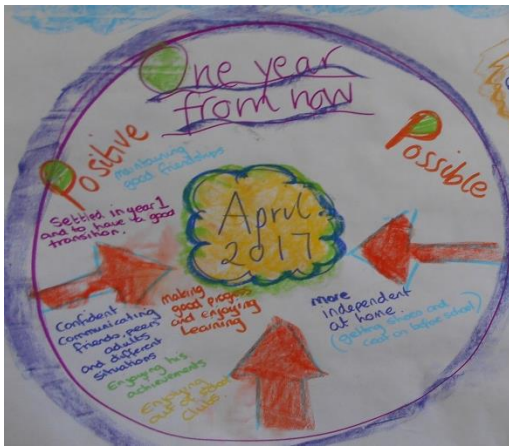 One year
from now
Positive
Possible
maintaining
good friendships
Settled in year 1
and to have to good
transition.
April
2017
Confident
communicating
friends, peers
adults
and different
situations
making
good progress
and Enjoying
Learning
Enjoying his
achievements
Enjoying
out of
clubs.
more
independent
at home.
(getting shoes and
coat on before school)